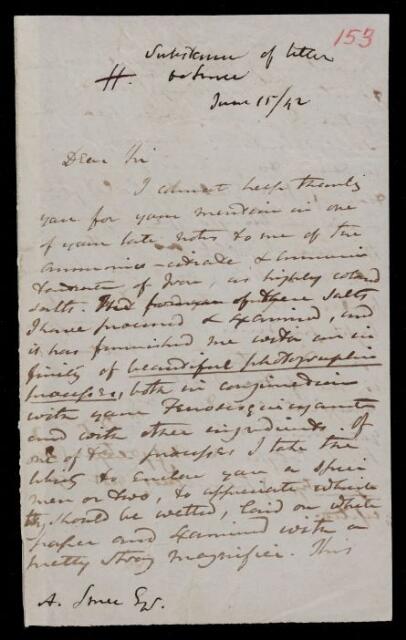 153
Substance of letter
#. to Smee
June 15/42
Dear Sir
I cannot help thanking
you for your mention in one
of your late notes to me of the
ammonio-citrate & ammonio
tartrate of Iron, as highly colored
salts. The former of these salts
I have procured & examined, and
it has furnished me with an in
finity of beautiful photographic
processes, both in conjunction
with your Ferrosesquicyanate
and with other ingredients. Of
one of these processes I take the
liberty to enclose you a speci
men or two, to appreciate which
they should be wetted, laid on white
paper and examined with a
pretty strong magnifier. This
A. Smee Esq.